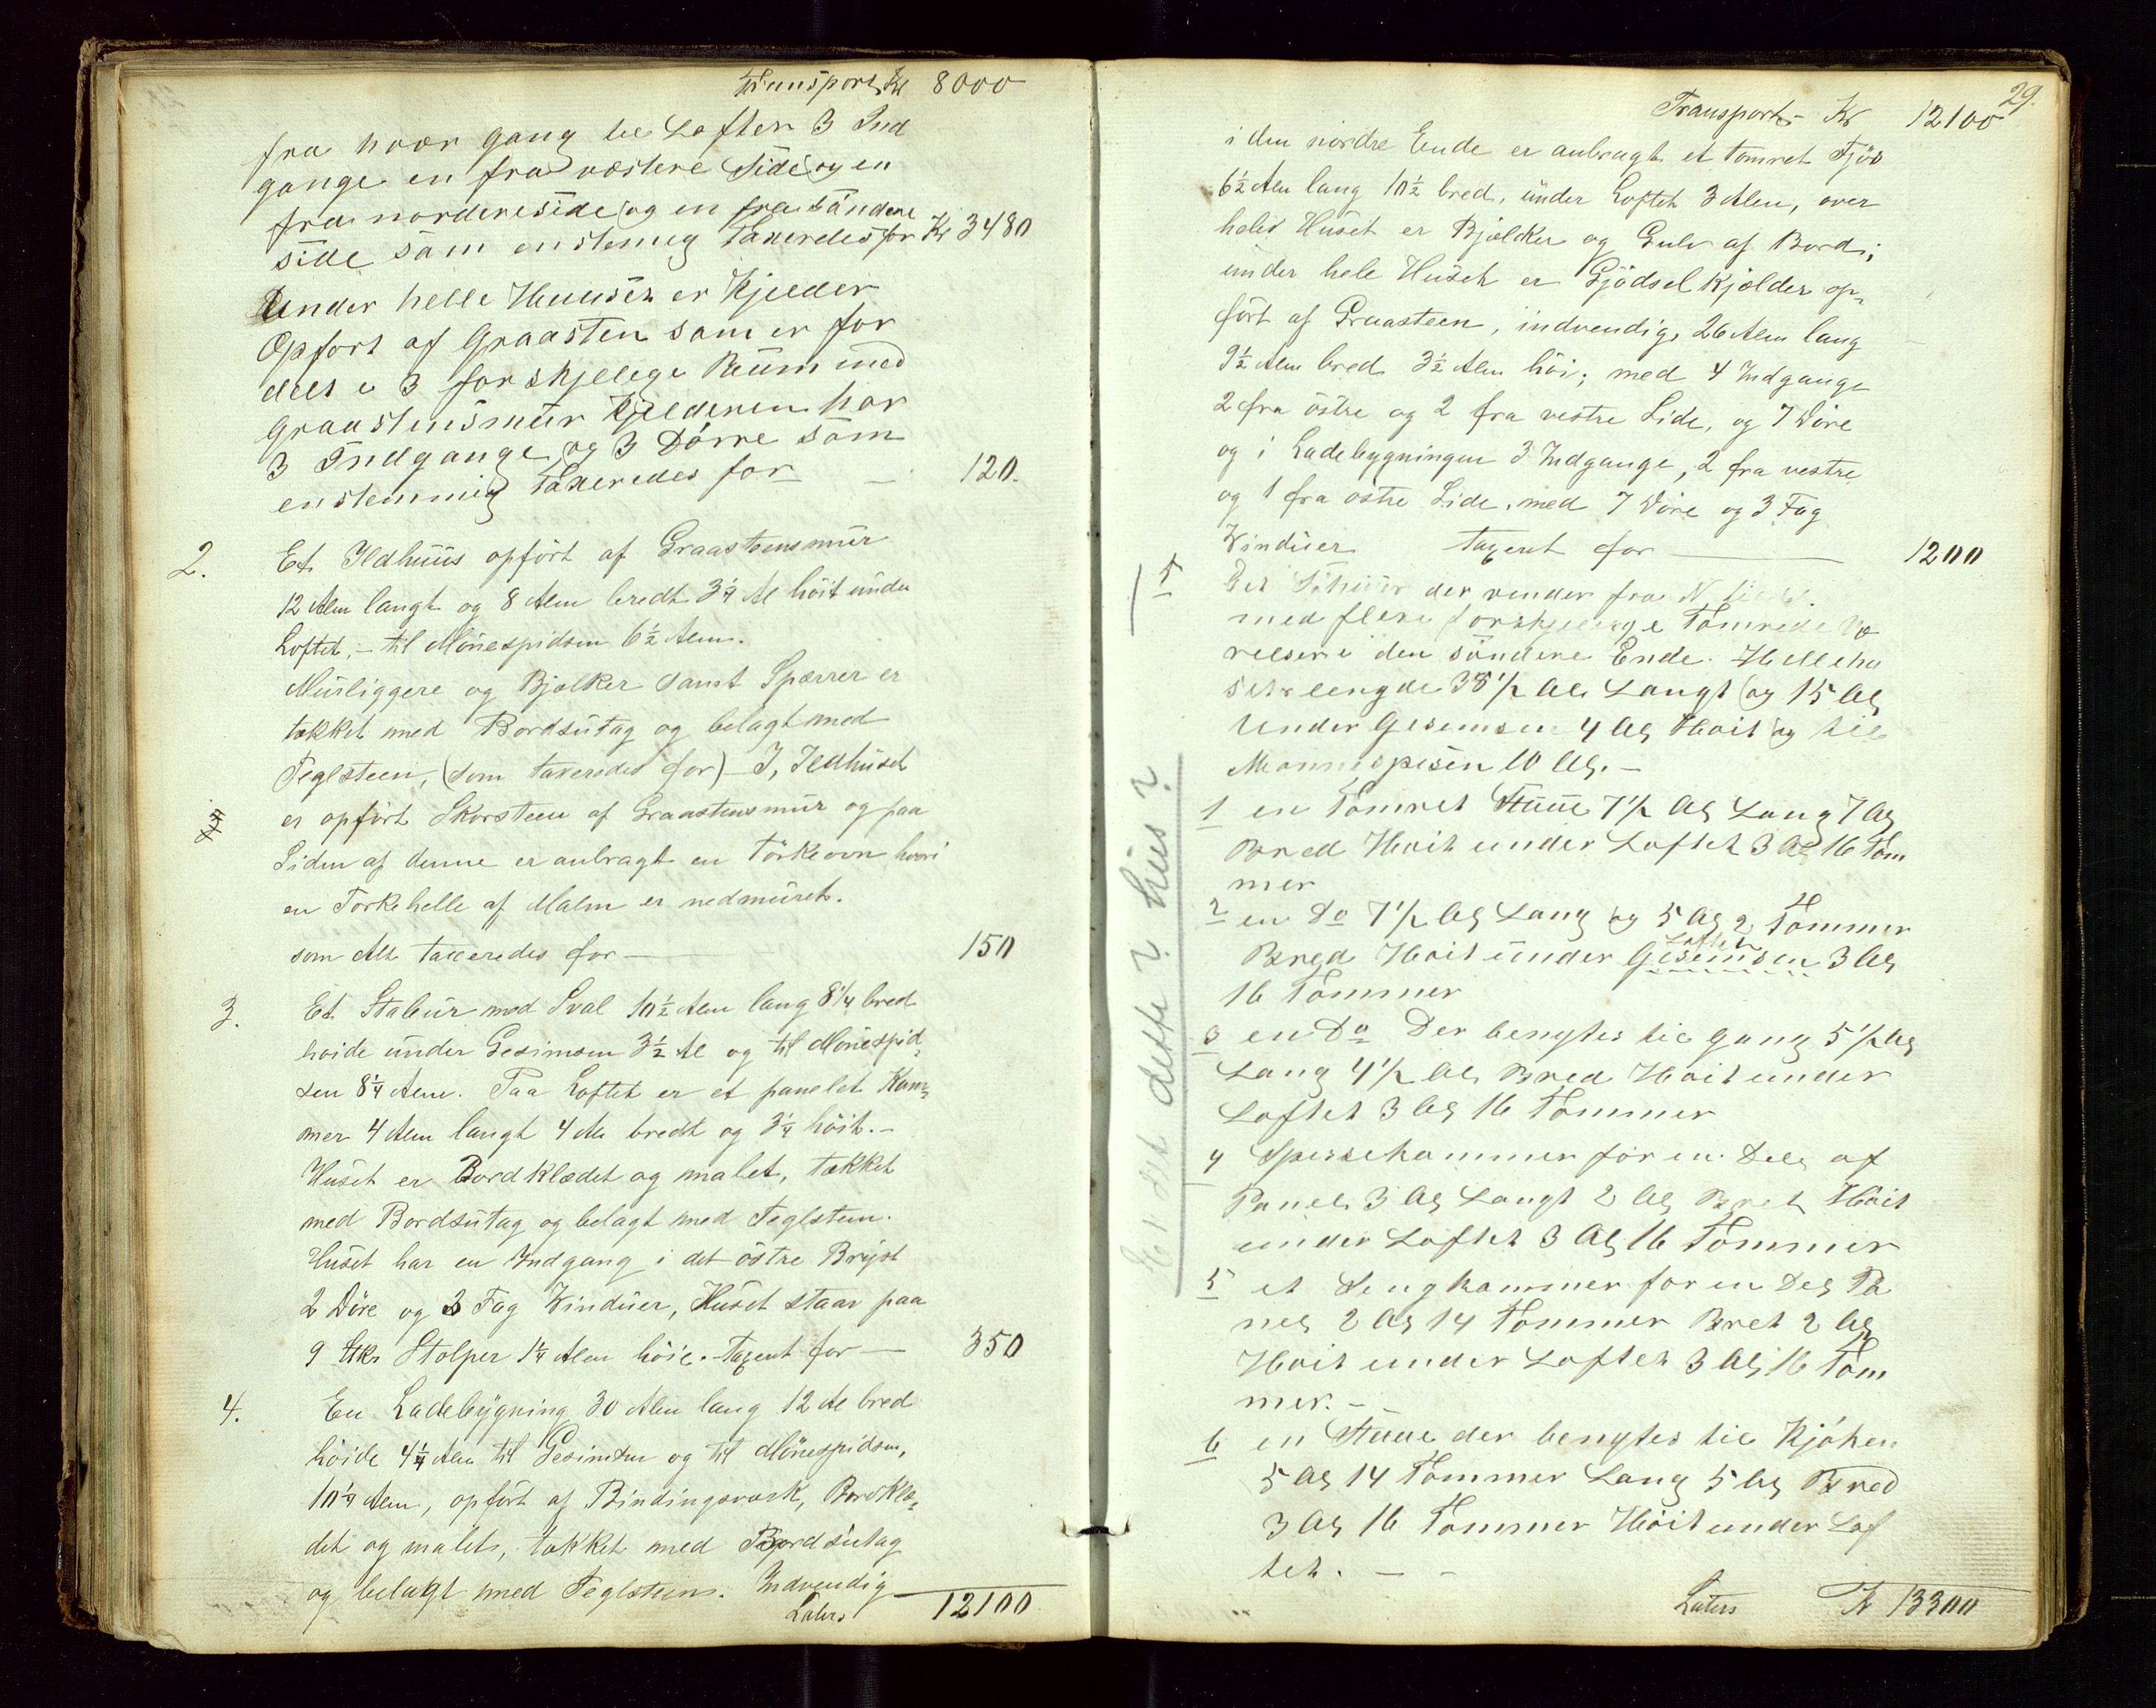 Transport Kr 8000
fra hver Gang til Loftet 3 Ind
gange en fra vestere Side og en
fra nordereside og en fra Søndere
side som enstemig Taxerdes for Kr 3480
Under helle Huuset er Kjelder
Opfort af Graasten som er for
delt i 3 forskjelige Rum med
Graastensmur Kjelderen har
3 Indgange og 3 Dörre som
enstemmig Taxeredes for — 120.
2. Et Ildhuus opfört af Graasteensmur
12 Alen langt og 8 Alen bredt 3 1/4 Al höit under
Loftet, - til Mönespidsen 6 1/2 Alen.
Murliggere og Bjelker samt Sparrer er
tækket med Bordsutag og belagt med
Teglsteen, (som taxeredes for) - I, Ildhuset
er opfört Skorsteen af Graasteensmur og paa
Siden af denne er anbragt en Törkeovn hvori
en Törkehelle af Malm er nedmuret.
som Alt taxeredes for — 150
3. Et Stabur med Sval 10 1/2 Alen lang 8 1/4 bred
höide under Gesimsen 3 1/2 Al og til Mönespid-
sen 8 1/4 Alen. Paa Loftet er et panelet Kam-
mer 4 Alen langt 4 Al bredt og 3 1/4 höit. -
Huset er Bordklædet og malet, tækket
med Bordsutag og belagt med Teglsteen.
Huset har en Indgang i det östre Bryst
2 Döre og 3 Fag Vinduer, Huset staar paa
9 Stkr Stolper 1 1/4 Alen höie. - Taxeret for — 350
4. En Ladebygning 30 Alen lang 12 Al bred
höide 4 1/4 Alen til Gesimsen og til Mönespidsen,
10 1/4 Alen, opfört af Bindingsværk, Bordklæ-
det og malet, tækket med Bordsutag
og belagt med Teglsteen. Indvendig
Laters 12100
29.
Transport - Kr 12100
i den nordre Ende er anbragt et tömret Fjös
6 1/2 Alen lang 10 1/2 bred, under Loftet 3 Alen, over
hele Huset er Bjælker og Gulv af Bord;
under hele Huset er Gjödselkjælder op-
fört af Graasteen, indvendig 26 Alen lang
9 1/2 Alen bred 3 1/2 Alen höi; med 4 Indgange
2 fra östre og 2 fra vestre Side, og 7 Döre
og i Ladebygningen 3 Indgange, 2 fra vestre
og 1 fra östre Side, med 7 Döre og 3 Fag
Vinduer taxeret for — 1200
5 Det der vender fra N
med flere forskjelige Tömrede Væ
relser i den söndere Ende. Hellehu
sets lengde 38 1/2 Al. Langt og 15 Al
Under Gesemsen 4 Al Höit og til
Mönnespisen 10 Al. -
1 en Tömret Stuue 7 1/2 Al Lang 7 Al
Bred Höit under Loftet 3 Al 16 Tom
mer
2 en Do 7 1/2 Al Lang og 5 Al 2 Tommer
Bred Höit under Gesemsen Loftet 3 Al
16 Tommer
3 en Do Der benytes til Gang 5 1/2 Al
Lang 4 1/2 Al Bred Höit under
Loftet 3 Al 16 Tommer
4 Spissekammer for en Del af
Panel 3 Al Langt 2 Al Bret Höit
under Loftet 3 Al 16 Tommer
5 et Sengkammer for en Del Pa
nel 2 Al 14 Tommer Bret 2 Al
Höit under Loftet 3 Al 16 Tom
mer. -
6 en Stuue der benytes til Kjöken
5 Al 14 Tommer Lang 5 Al Bred
3 Al 16 Tommer Höit under Lof
tet. - -
Laters Kr 13300
Er det dette ? hus ?